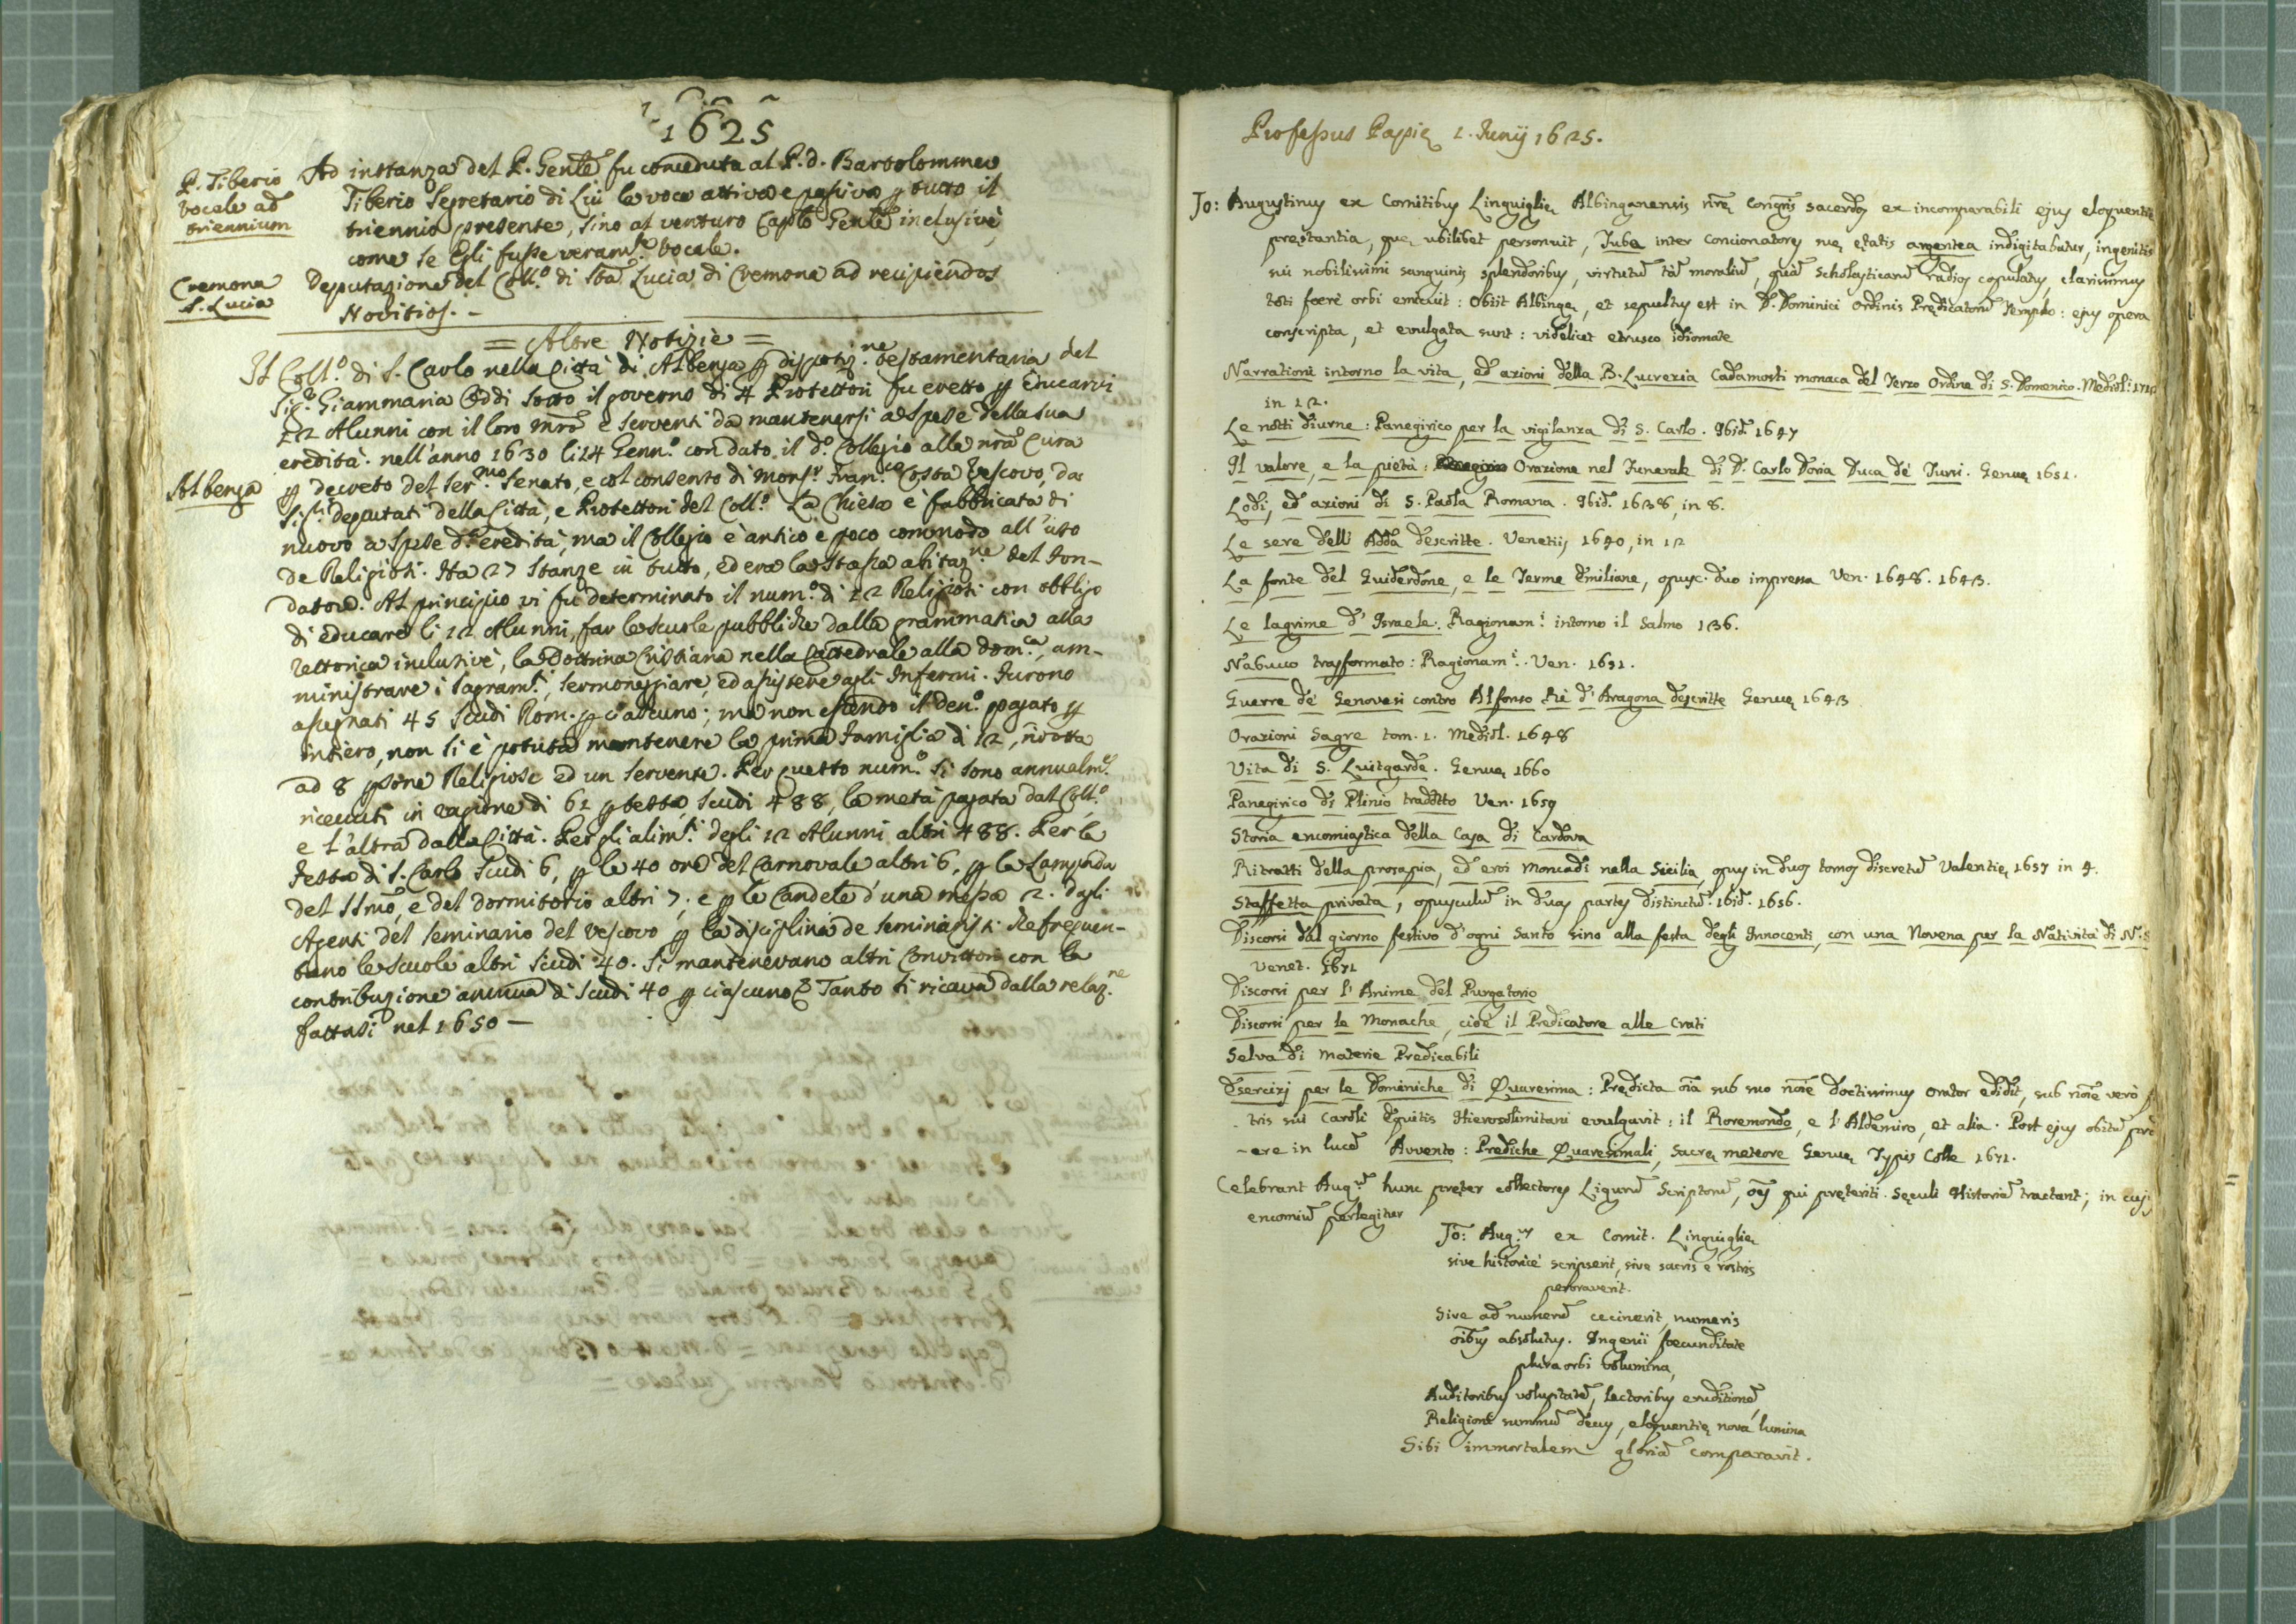 1625
P. Tiberio
vocale ad
triennium
Ad instanza del P. Gentle fu conceduta al P. d. Bartolommeo
Tiberio Segretario di Lui la voce attiva e passiva p tutto il
triennio presente, sino al venturo Caplo Gentle inclusivè,
come se Egli fusse veramte vocale.
Cremona
S. Lucia
Deputazione del Coll.o di Sta Lucia di Cremona ad recipiendos
Novitios. -
= Altre Notizie =
Il Coll.o di S. Carlo nella Città di Albenga p disposiz.ne testamentaria del
Sig.r Giammaria Oddi sotto il governo di 4 Protettori fu eretto p Educarvi
12 Alunni con il loro mro e serventi da mantenersi a spese della sua
eredità. nell'anno 1630 li 24 Genn.o fu dato il d.o Collegio alla nra Cura
Albenga
p decreto del Ser.mo Senato, e col consenso di Monsr Fran.co Costa Vescovo, da
Sig.ri deputati della Città, e Protettori del Coll.o La Chiesa è fabbricata di
nuovo a spese d.a eredità, ma il Collegio è antico e poco commodo all'uso
de Religiosi. Ha 27 stanze in tutto, ed era la stessa abitaz.ne del Fon-
datore. Al principio vi fu determinato il num.o di 12 Religiosi con obbligo
di educare li 12 Alunni, far le scuole pubbliche dalla grammatica alla
rettorica inclusivè, la Dottrina Cristiana nella Cattedrale alla dom.ca, am-
ministrare i Sagram.ti, sermoneggiare, ed assistere agli Infermi. Furono
assegnati 45 scudi Rom. p ciascuno; ma non essendo il den.o pagato p
intiero, non si è potuta mantenere la prima famiglia di 12, ridotta
ad 8 psone Religiose ed un servente. Per questo num.o si sono annualm.te
ricevuti in ragione di 61 p testa, scudi 488, la metà pagata dal Coll.o,
e l'altra dalla Città. Per gli alim.ti degli 12 Alunni altri 488. Per la
festa di S. Carlo scudi 6, p le 40 ore del Carnovale altri 6, p la Lampada
del SSmo, e del dormitorio altri 7; e p le Candele d'una messa 2. Dagli
Agenti del Seminario del Vescovo p la disciplina de Seminaristi che frequen-
tano le scuole altri scudi 40. Si mantenevano altri Convittori con la
contribuzione annua di scudi 40 p ciascuno. Tanto si ricava dalla relaz.ne
fattasi nel 1650 —
Professus Papię 1. Junij 1625.
Jo: Augustinus ex Comitibus Linguiglię Albinganensis nrę Congnis sacerdos ex incomparabili ejus eloquentię
prestantia, quę ubilibet personuit, Tuba inter Concionatores suę ętatis argentea indigitabatur, ingenitis
sui nobilissimi sanguinis splendoribus, virtutū tā moraliū, quā scholasticarū radios copulatus, clarissimus
toti ferè orbi emicuit: Obiit Albingę, et sepultus est in D. Dominici Ordinis Prędicatorū Templo: ejus opera
conscripta, et evulgata sunt: videlicet etrusco idiomate
Narrationi intorno la vita, ed azioni della B. Lucrezia Cadamosti monaca del Terzo Ordine di S. Domenico. Mediol:
in 12.
Le notti diurne: Panegirico per la vigilanza di S. Carlo. Ibid. 1647
Il valore, e la pietà: Orazione nel Funerale di D. Carlo Doria Duca de' Tursi. Genuę 1651.
Lodi, ed azioni di S. Paola Romana. Ibid. 1638, in 8.
Le sere dell' Adda descritte. Venetiis 1640, in 12
La fonte del Guiderdone, e le Terme Emiliane, opusc. duo impressa Ven. 1648. 1643.
Le lagrime d' Israele. Ragionam.i intorno il Salmo 136.
Nabucco trasformato: Ragionam.i. Ven. 1651.
Guerre de' Genovesi contro Alfonso Rè d' Aragona descritte Genuę 1643
Orazioni Sagre tom. 1. Mediol. 1648
Vita di S. Luitgarde. Genuę 1660
Panegirico di Plinio tradotto Ven. 1659
Storia encomiastica della Casa di Cardova
Ritratti della prosapia, ed eroi Moncadi nella Sicilia, opus in duos tomos discretū Valentię 1657 in 4.
Staffetta privata, opusculū in duas partes distinctū. ibid. 1656.
Discorsi dal giorno festivo d'ogni Santo sino alla festa degli Innocenti, con una Novena per la Natività di N. S
Venet. 1671
Discorsi per l' Anime del Purgatorio
Discorsi per le Monache, cioè il Predicatore alle Grati
Selva di materie Predicabili
Esercizj per le Dominiche di Quaresima: Prędicta oīa sub suo noīe doctissimus Orator edidit, sub noīe verò
tris sui Caroli Equitis Hierosolimitani evulgavit: il Roremondo, e l' Aldemiro, et alia. Post ejus obitū
-ere in lucē Avvento: Prediche Quaresimali, Sacrę meteore Genuę Typis Colle 1671.
Celebrant Aug.m hunc pręter collectores Ligurū Scriptorū, oēs qui pręteriti Sęculi Historiā tractant; in
encomiū perlegitur
Jo: Aug.us ex Comit. Linguiglię
sive historicè scripserit, sive sacris è rostris
peroraverit.
Sive ad numerū cecinerit, numeris
oībus absolutus. Ingenii fœcunditate
plura orbi Volumina,
Auditoribus voluptatē, lectoribus eruditionē,
Religioni summū decus, eloquentię nova lumina
Sibi immortalem gloriā comparavit.